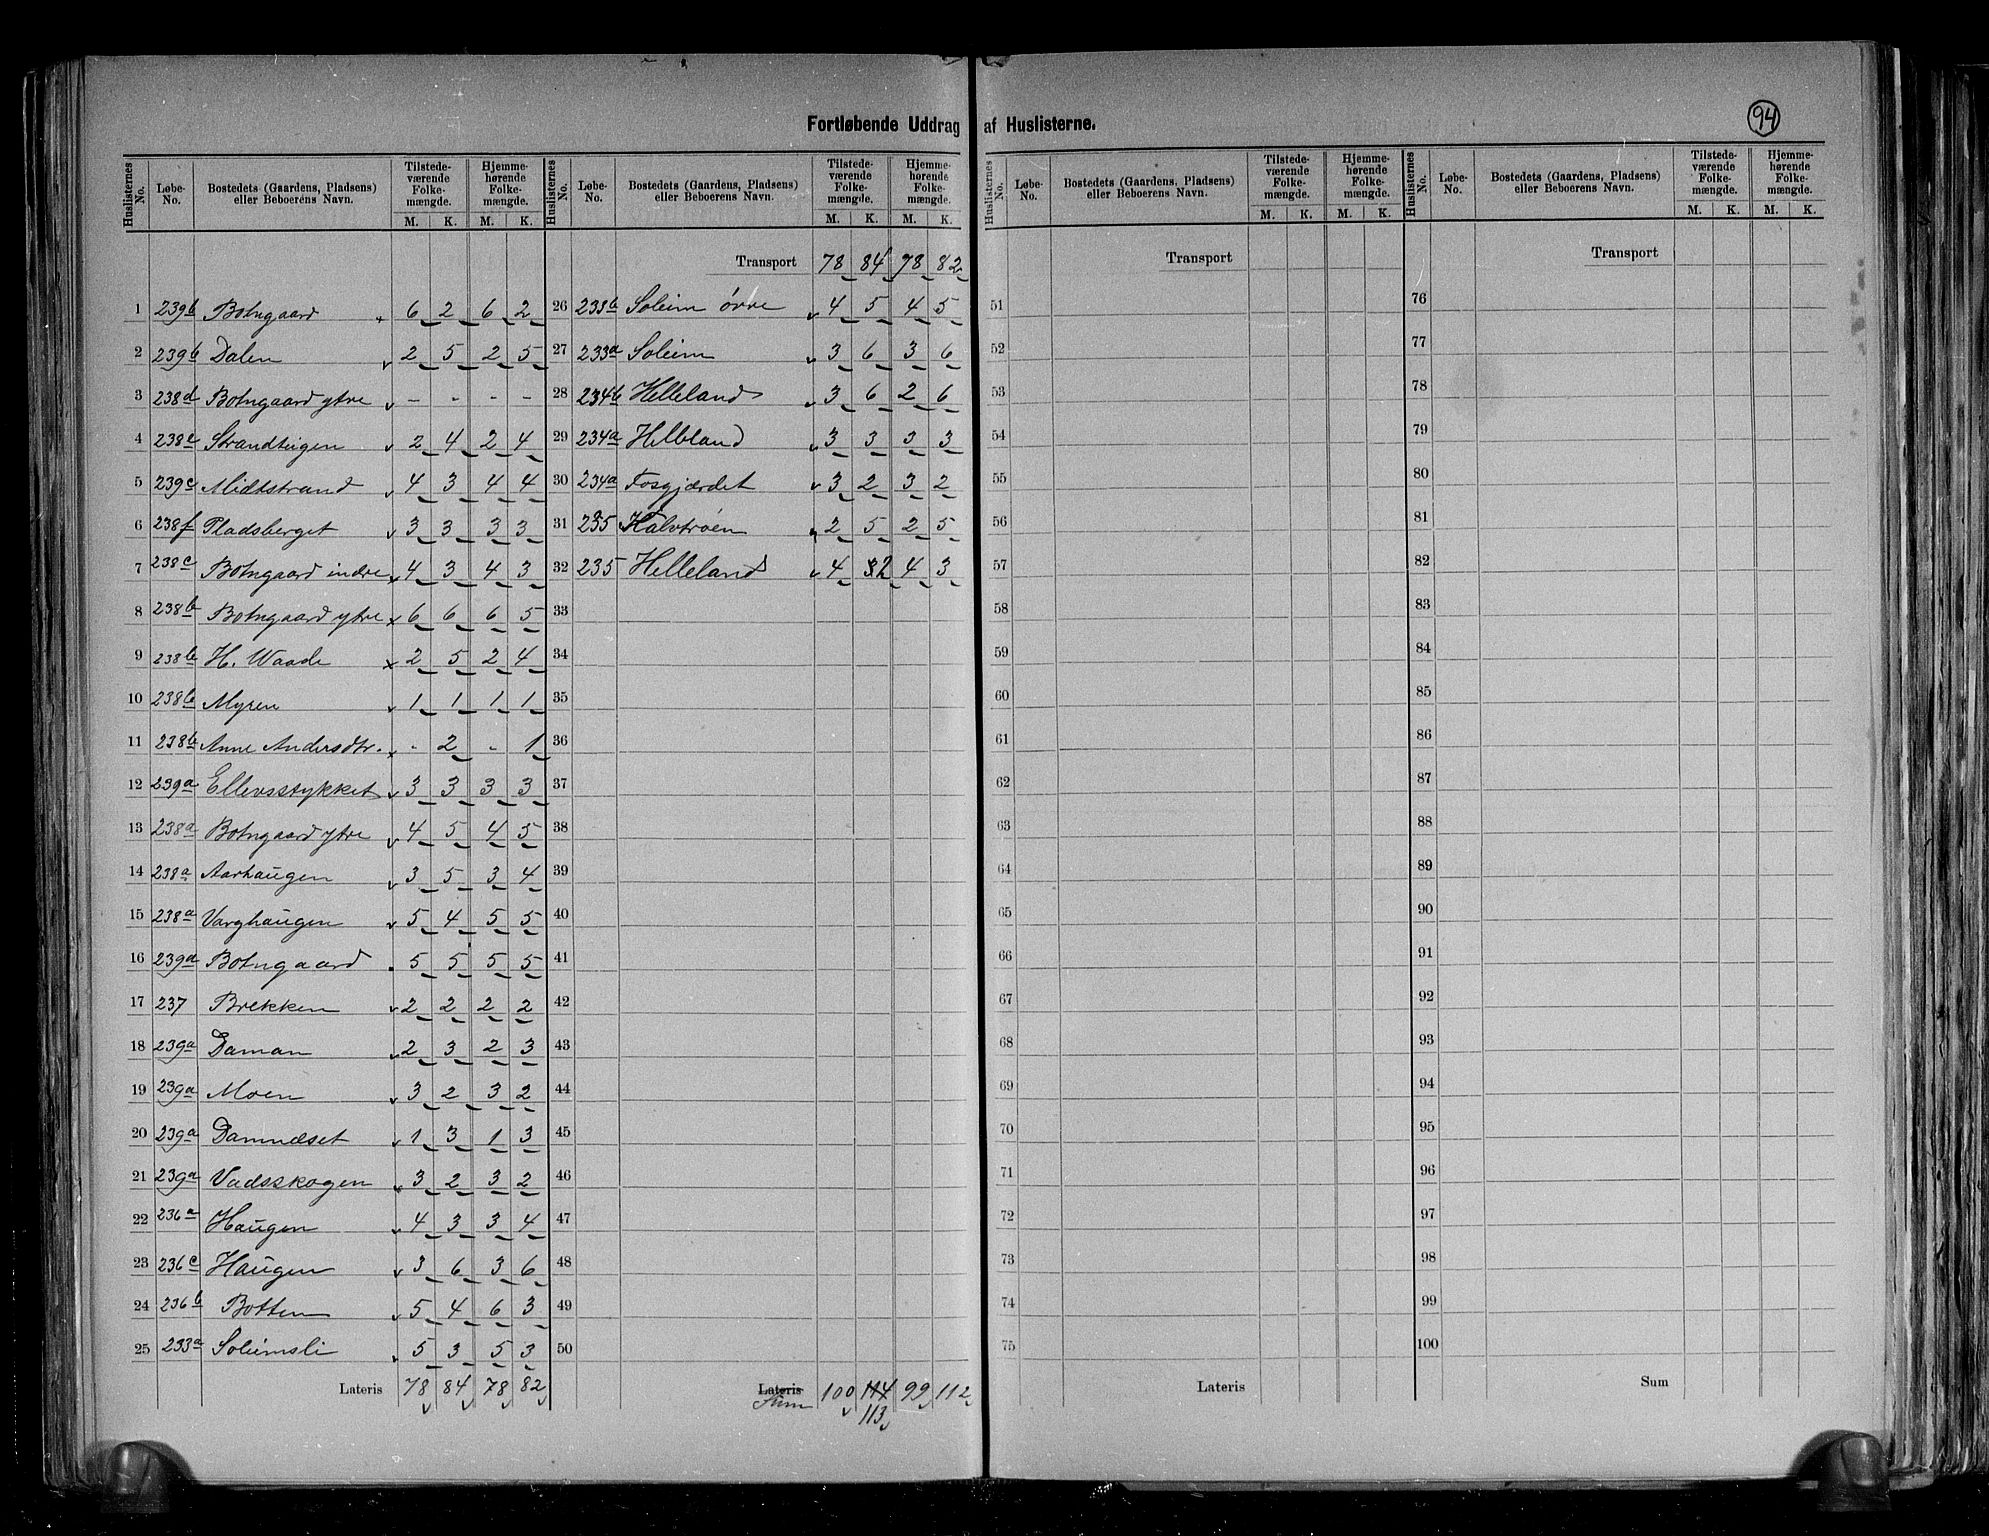 Fortløbende Uddrag af Huslisterne.
94
Huslisternes No. | Løbe-No. | Bostedets (Gaardens, Pladsens) eller Beboerens Navn. | Tilstedeværende Folkemængde. M. K. | Hjemmehørende Folkemængde. M. K.
1 239b Botngaard 6 2 6 2
2 239b Dalen 2 5 2 5
3 238d Botngaard ytre - - - -
4 238e Strandteigen 2 4 2 4
5 239c Midtstrand 4 3 4 4
6 238f Pladsberget 3 3 3 3
7 238c Botngaard indre 4 3 4 3
8 238b Botngaard ytre 6 6 6 5
9 238b H. Waade 2 5 2 4
10 238b Myren 1 1 1 1
11 238b Anne Andersdtr. - 2 - 1
12 239a Ellevsstykket 3 3 3 3
13 238a Botngaard ytre 4 5 4 5
14 238a Aarhaugen 3 5 3 4
15 238a Varghaugen 5 4 5 5
16 239d Botngaard 5 5 5 5
17 237 Brekken 2 2 2 2
18 239a Daman 2 3 2 3
19 239a Moen 3 2 3 2
20 239a Damndset 1 3 1 3
21 239a Vadsskogen 3 2 3 2
22 236a Haugen 4 3 3 4
23 236c Haugen 3 6 3 6
24 236b Botten 5 4 6 3
25 233a Soleimsli 5 3 5 3
Lateris 78 84 78 82
Huslisternes No. | Løbe-No. | Bostedets (Gaardens, Pladsens) eller Beboerens Navn. | Tilstedeværende Folkemængde. M. K. | Hjemmehørende Folkemængde. M. K.
Transport 78 84 78 82
26 233b Soleim øvre 4 5 4 5
27 233a Soleim 3 6 3 6
28 234b Helleland 3 6 2 6
29 234a Helleland 3 3 3 3
30 234a Fosgjærdet 3 2 3 2
31 235 Kalvtrøen 2 5 2 5
32 235 Helleland 4 2 4 3
33
34
35
36
37
38
39
40
41
42
43
44
45
46
47
48
49
50
Lateris Sum 100 114 99 112
113
Huslisternes No. | Løbe-No. | Bostedets (Gaardens, Pladsens) eller Beboerens Navn. | Tilstedeværende Folkemængde. M. K. | Hjemmehørende Folkemængde. M. K.
Transport
51
52
53
54
55
56
57
58
59
60
61
62
63
64
65
66
67
68
69
70
71
72
73
74
75
Lateris
Huslisternes No. | Løbe-No. | Bostedets (Gaardens, Pladsens) eller Beboerens Navn. | Tilstedeværende Folkemængde. M. K. | Hjemmehørende Folkemængde. M. K.
Transport
76
77
78
79
80
81
82
83
84
85
86
87
88
89
90
91
92
93
94
95
96
97
98
99
100
Sum